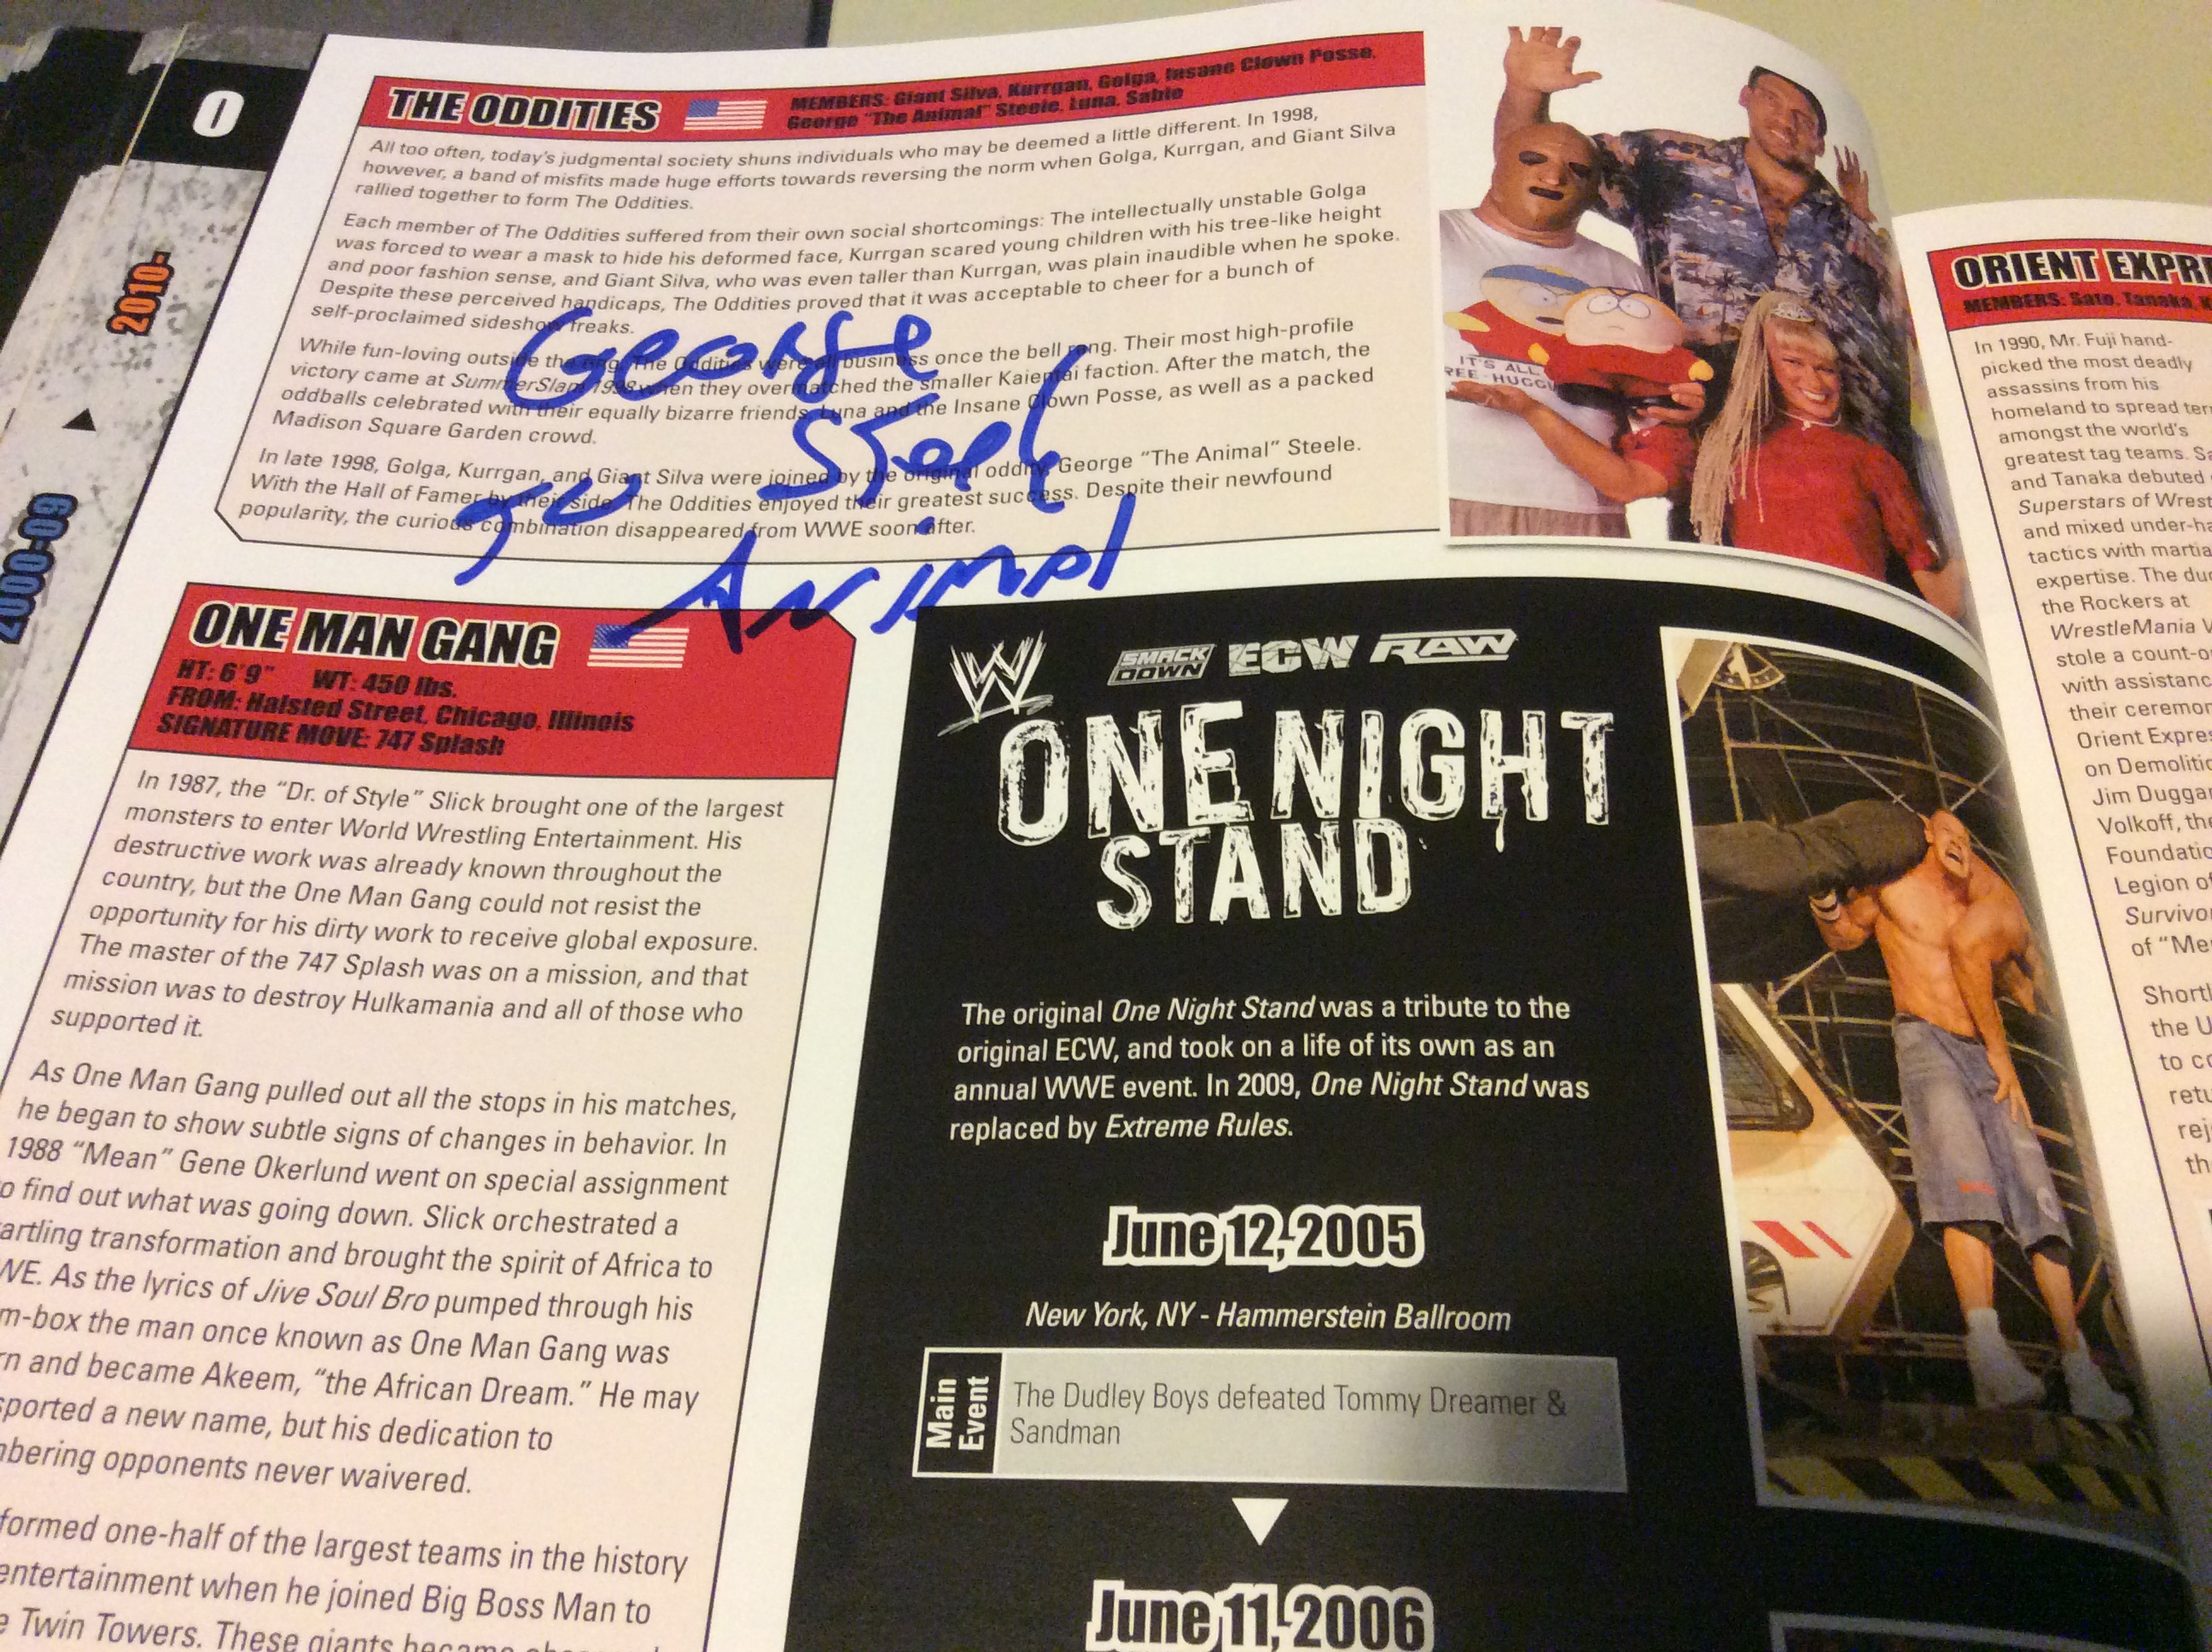 O
2010-
2000-09
THE ODDITIES
MEMBERS: Giant Silva, Kurrgan, Golga, Insane Clown Posse,
George "The Animal" Steele, Luna, Sable
All too often, today's judgmental society shuns individuals who may be deemed a little different. In 1998,
however, a band of misfits made huge efforts towards reversing the norm when Golga, Kurrgan, and Giant Silva
rallied together to form The Oddities.
Each member of The Oddities suffered from their own social shortcomings: The intellectually unstable Golga
was forced to wear a mask to hide his deformed face, Kurrgan scared young children with his tree-like height
and poor fashion sense, and Giant Silva, who was even taller than Kurrgan, was plain inaudible when he spoke.
Despite these perceived handicaps, The Oddities proved that it was acceptable to cheer for a bunch of
self-proclaimed sideshow freaks.
While fun-loving outside the ring, The Oddities were all business once the bell rang. Their most high-profile
victory came at SummerSlam 1998 when they overmatched the smaller Kaientai faction. After the match, the
oddballs celebrated with their equally bizarre friends, Luna and the Insane Clown Posse, as well as a packed
Madison Square Garden crowd.
In late 1998, Golga, Kurrgan, and Giant Silva were joined by the original oddity, George "The Animal" Steele.
With the Hall of Famer by their side, The Oddities enjoyed their greatest success. Despite their newfound
popularity, the curious combination disappeared from WWE soon after.
George
Steele
Animal
IT'S ALL
ONE MAN GANG
HT: 6'9" WT: 450 lbs.
FROM: Halsted Street, Chicago, Illinois
SIGNATURE MOVE: 747 Splash
In 1987, the "Dr. of Style" Slick brought one of the largest
monsters to enter World Wrestling Entertainment. His
destructive work was already known throughout the
country, but the One Man Gang could not resist the
opportunity for his dirty work to receive global exposure.
The master of the 747 Splash was on a mission, and that
mission was to destroy Hulkamania and all of those who
supported it.
As One Man Gang pulled out all the stops in his matches,
he began to show subtle signs of changes in behavior. In
1988 "Mean" Gene Okerlund went on special assignment
o find out what was going down. Slick orchestrated a
artling transformation and brought the spirit of Africa to
WE. As the lyrics of Jive Soul Bro pumped through his
m-box the man once known as One Man Gang was
rn and became Akeem, "the African Dream." He may
sported a new name, but his dedication to
mbering opponents never waivered.
formed one-half of the largest teams in the history
entertainment when he joined Big Boss Man to
e Twin Towers. These giants
W
SMACK DOWN ECW RAW
ONE NIGHT
STAND
The original One Night Stand was a tribute to the
original ECW, and took on a life of its own as an
annual WWE event. In 2009, One Night Stand was
replaced by Extreme Rules.
June 12, 2005
New York, NY - Hammerstein Ballroom
Main Event
The Dudley Boys defeated Tommy Dreamer &
Sandman
June 11, 2006
ORIENT EXPR
MEMBERS: Sato, Tanaka,
In 1990, Mr. Fuji hand-
picked the most deadly
assassins from his
homeland to spread ter
amongst the world's
greatest tag teams. Sa
and Tanaka debuted
Superstars of Wrest
and mixed under-ha
tactics with martia
expertise. The du
the Rockers at
WrestleMania V
stole a count-o
with assistanc
their ceremon
Orient Expres
on Demolitio
Jim Duggan
Volkoff, the
Foundatio
Legion of
Survivo
of "Me
Shortl
the U
to co
retu
rej
th